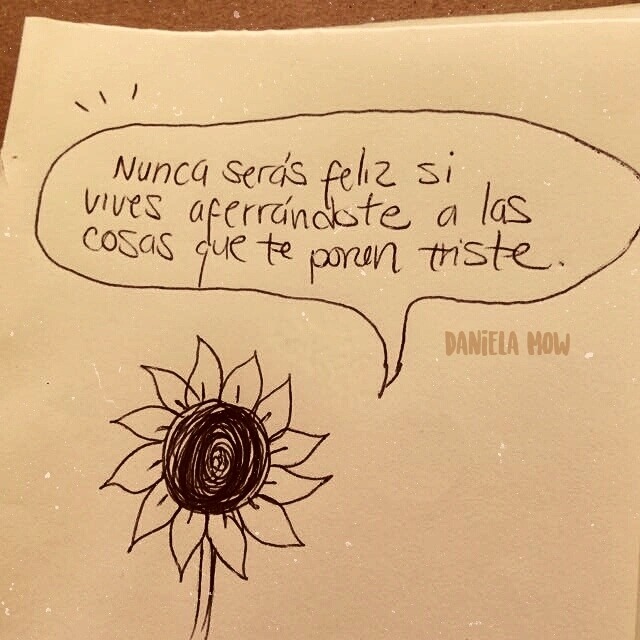 Nunca serás feliz si
vives aferrándote a las
cosas que te ponen triste.
DANIELA MOW